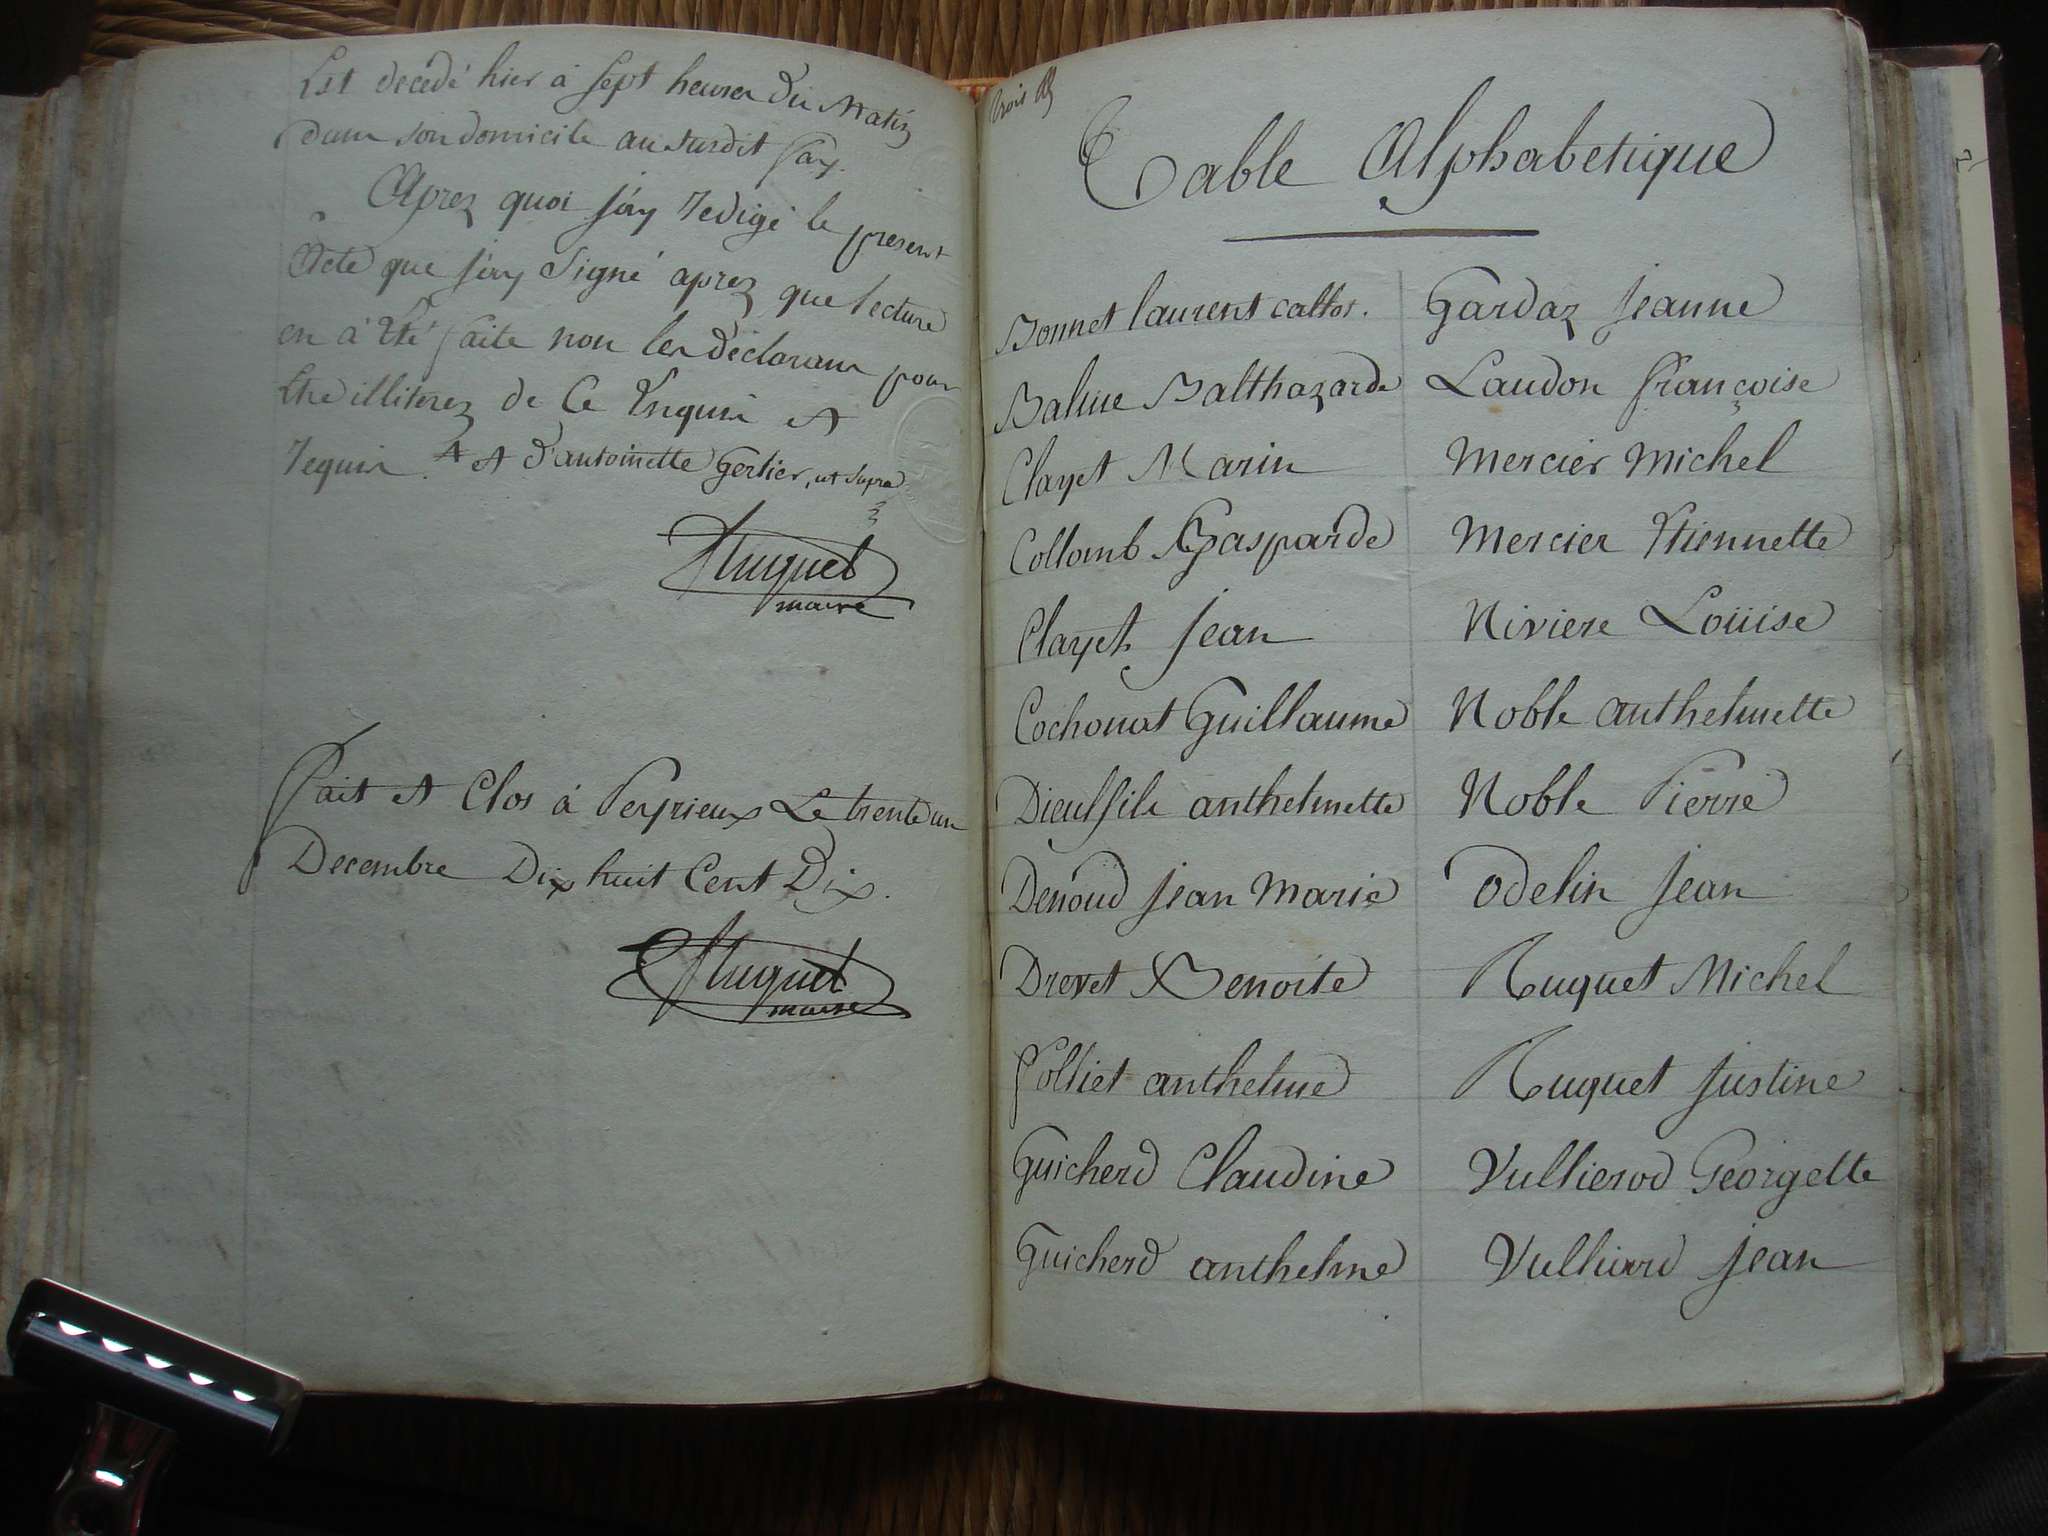 Est decedé hier à sept heures du Matin
dans son domicile au susdit Pay.
Aprez quoi j'ay redigé le present
Acte que j'ay Signé aprez que lecture
en à été faite non les déclarans pour
Etre illiterez de Ce Enquis et
requis. et d'antoinette Gerlier, ut supra
Huguet
maire
Fait et Clos à Peyrieux Le trente un
Decembre Dix huit Cent Dix.
Huguet
maire
Table Alphabetique
Bonnet laurent
Balme Balthazarde
Clayet Marin
Collomb Gasparde
Clayet Jean
Cochonat Guillaume
Dieulfils anthelmette
Denoud Jean Marie
Drevet Benoite
Folliet anthelme
Guicherd Claudine
Guicherd anthelme
Gardaz Jeanne
Laudon françoise
Mercier Michel
Mercier Etiennette
Niviere Loüise
Noble anthelmette
Noble Pierre
Odelin Jean
Ruquet Michel
Ruquet Justine
Vullierod Georgette
Vulliard Jean